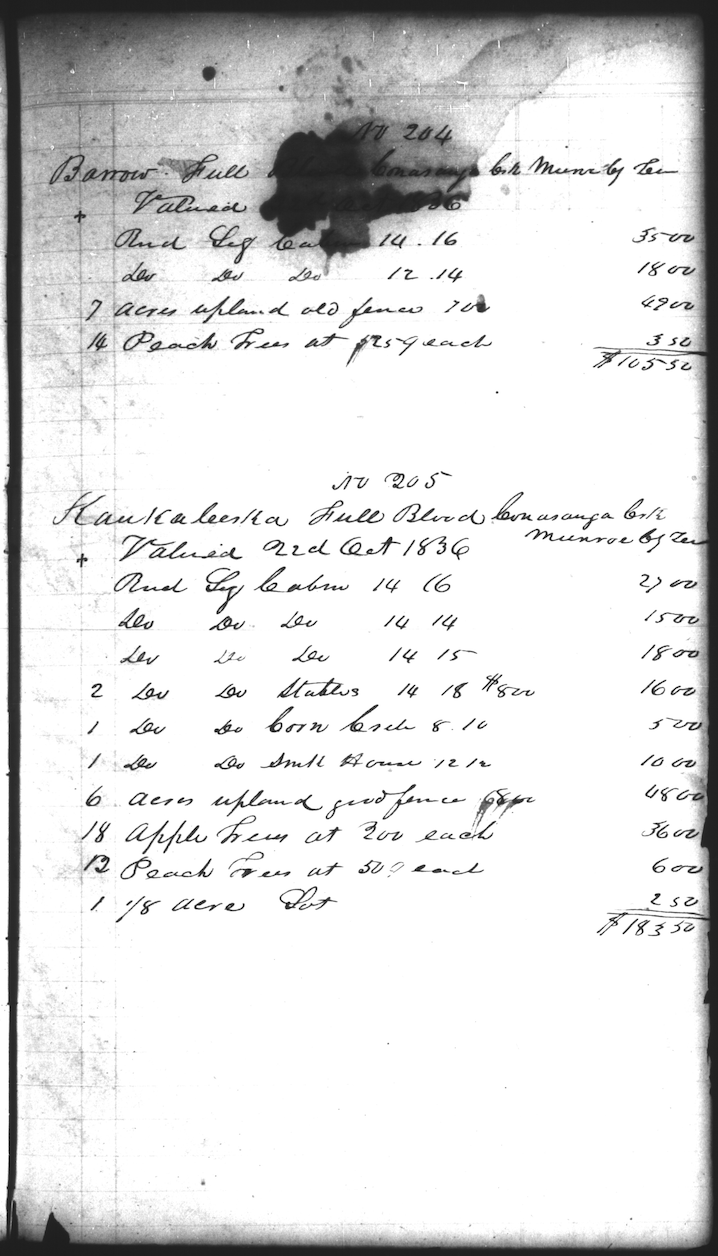 No 204
Barrow Full Conasauga Crk Munroe Cy Ten
+ Valued Oct 1836
Rnd Log Cabin 14 . 16 3500
Do Do Do 12 . 14 1800
7 acres upland old fence 700 4900
14 Peach Trees at 25¢ each 350
$10550
No 205
Kaukaleeska Full Blood Conasauga Crk
Munroe Cy Ten
+ Valued 22d Oct 1836
Rnd Log Cabin 14 16 2700
Do Do Do 14 14 1500
Do Do Do 14 15 1800
2 Do Do Stables 14 18 $800 1600
1 Do Do Corn Crib 8 . 10 500
1 Do Do Smk House 12 12 1000
6 acres upland good fence 800 4800
18 Apple Trees at 200 each 3600
12 Peach Trees at 50¢ each 600
1 1/8 acre Lot 250
$18350